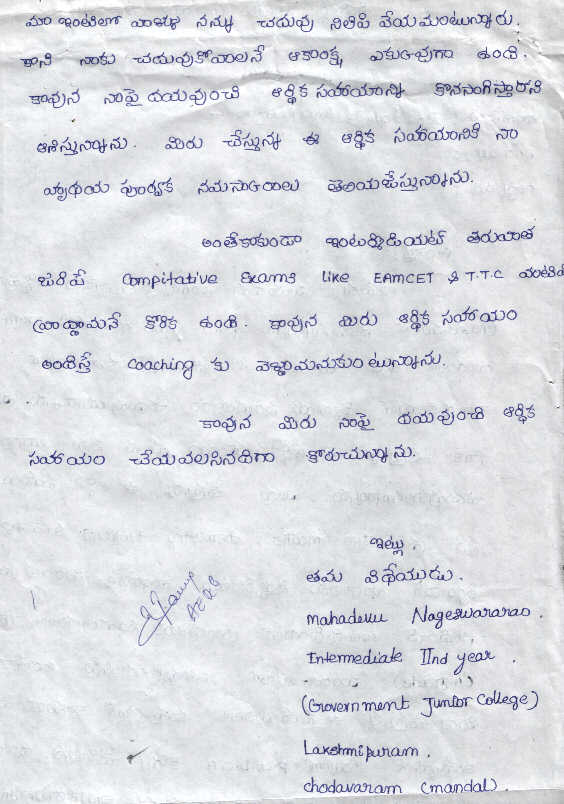 మా ఇంటిలో వాళ్ళు నన్ను చదువు నిలిపి వేయమంటున్నారు.
కాని నాకు చదువుకోవాలనే ఆకాంక్ష ఎక్కువుగా ఉంది.
కావున నాపై దయవుంచి ఆర్థిక సహాయాన్ని కొనసాగిస్తారని
ఆశిస్తున్నాను. మీరు చేస్తున్న ఈ ఆర్థిక సహాయానికి నా
హృదయ పూర్వక నమస్కారాలు తెలియచేస్తున్నాను.
అంతేకాకుండా ఇంటర్మీడియట్ తరువాత
జరిపే Compitative Exams like EAMCET & T.T.C వంటివి
వ్రాద్దామనే కోరిక ఉంది. కావున మీరు ఆర్థిక సహాయం
అందిస్తే Coaching కు వెళ్దామనుకుంటున్నాను.
కావున మీరు నాపై దయవుంచి ఆర్థిక
సహాయం చేయవలసినదిగా కోరుచున్నాను.
ఇట్లు.
తమ విధేయుడు.
Mahadevu Nageswararao.
Intermediate IInd year.
(Government Junior College)
Lakshmipuram.
chodavaram (mandal).